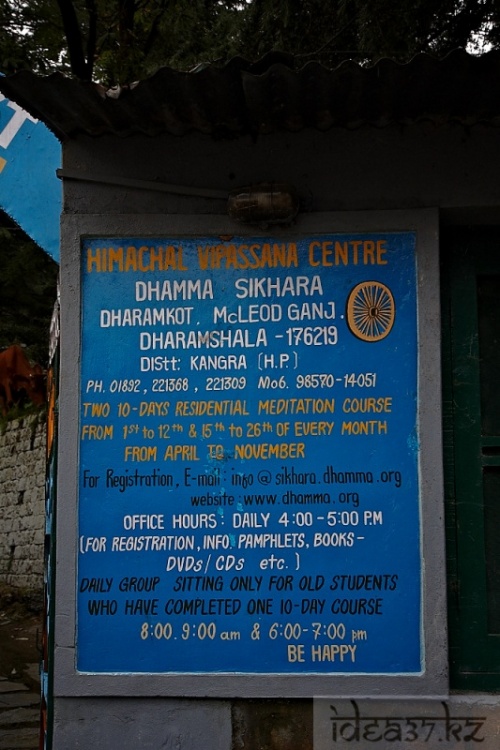 T
HIMACHAL VIPASSANA CENTRE
DHAMMA SIKHARA
DHARAMKOT, McLEOD GANJ.
DHARAMSHALA - 176219
DIStt: KANGRA (H.P.)
PH. 01892, 221368, 221309 Mo6. 98570-14051
TWO 10-DAYS RESIDENTIAL MEDITATION COURSE
FROM 1st to 12th & 15th to 26th OF EVERY MONTH
FROM APRIL TO NOVEMBER
For Registration, E-mail: info@sikhara.dhamma.org
website: www.dhamma.org
OFFICE HOURS: DAILY 4:00-5:00 P.M
(FOR REGISTRATION, INFO. PAMPHLETS, BOOKS-
DVDs/CDs etc.)
DAILY GROUP SITTING ONLY FOR OLD STUDENTS
WHO HAVE COMPLETED ONE 10-DAY COURSE
8:00.9:00 am & 6:00-7:00 pm
BE HAPPY
idea37.kz